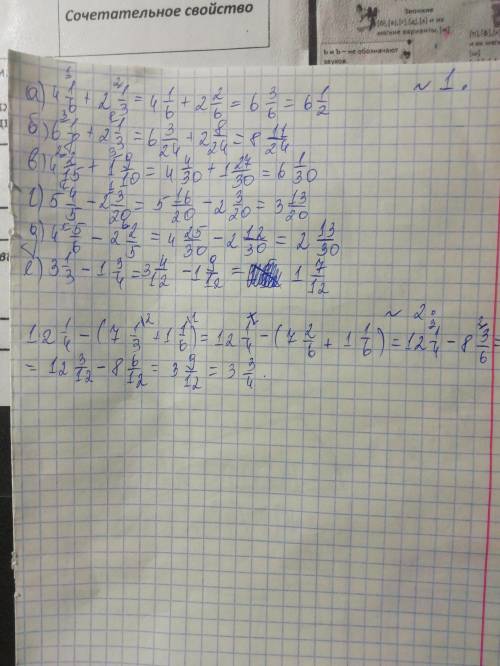 Сочетательное свойство
Звонкие
мягкие варианты, [м]
Ь и Ь – не обозначают
звуков.
~ 1.
а) 4 1/6 + 2 1/3 = 4 1/6 + 2 2/6 = 6 3/6 = 6 1/2
б) 6 1/8 + 2 1/3 = 6 3/24 + 2 8/24 = 8 11/24
в) 4 2/15 + 1 9/10 = 4 4/30 + 1 27/30 = 6 1/30
г) 5 4/5 - 2 3/20 = 5 16/20 - 2 3/20 = 3 13/20
д) 4 5/6 - 2 2/5 = 4 25/30 - 2 12/30 = 2 13/30
е) 3 1/3 - 1 3/4 = 3 4/12 - 1 9/12 = 1 7/12
~ 2.
12 1/4 - (7 1/3 + 1 1/6) = 12 1/4 - (7 2/6 + 1 1/6) = 12 1/4 - 8 3/6 =
= 12 3/12 - 8 6/12 = 3 9/12 = 3 3/4.